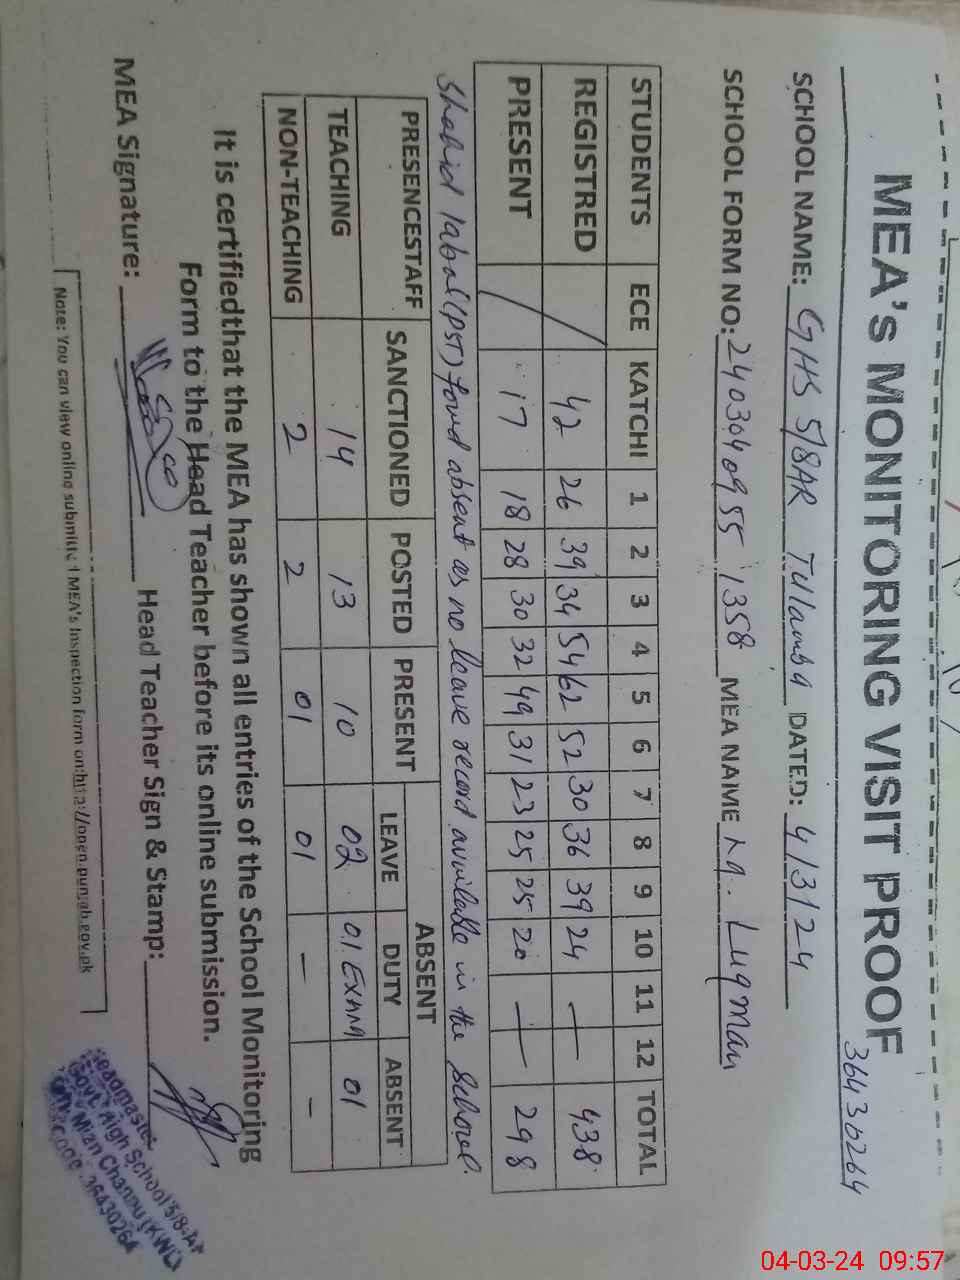 36430264
MEA's MONITORING VISIT PROOF
SCHOOL NAME: GHS 5/8AR Tulamba DATED: 4/3/24
SCHOOL FORM NO: 24030409551358 MEA NAME M. Luqman
STUDENTS ECE KATCHI 1 2 3 4 5 6 7 8 9 10 11 12 TOTAL
REGISTRED / 42 26 39 34 54 62 52 30 36 39 24 — 438
PRESENT 17 18 28 30 32 49 31 23 25 25 20 — 298
Shahid Iabal (PST) found absent as no leave record available in the school.
PRESENCESTAFF SANCTIONED POSTED PRESENT ABSENT
LEAVE DUTY ABSENT
TEACHING 14 13 10 02 01 EXAM 01
NON-TEACHING 2 2 01 01 — -
It is certifiedthat the MEA has shown all entries of the School Monitoring
Form to the Head Teacher before its online submission.
MEA Signature: Head Teacher Sign & Stamp:
Headmaster
Govt. High School 5/8-AR
Mian Channu (KWL)
36430264
Note: You can view online submitted MEA's Inspection form on:http://open.punjab.gov.pk
04-03-24 09:57